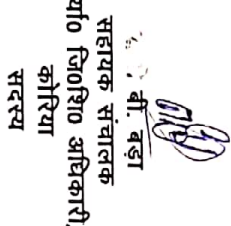 बी. बड़ा
सहायक संचालक
र्या० जि०शि० अधिकारी,
कोरिया
सदस्य